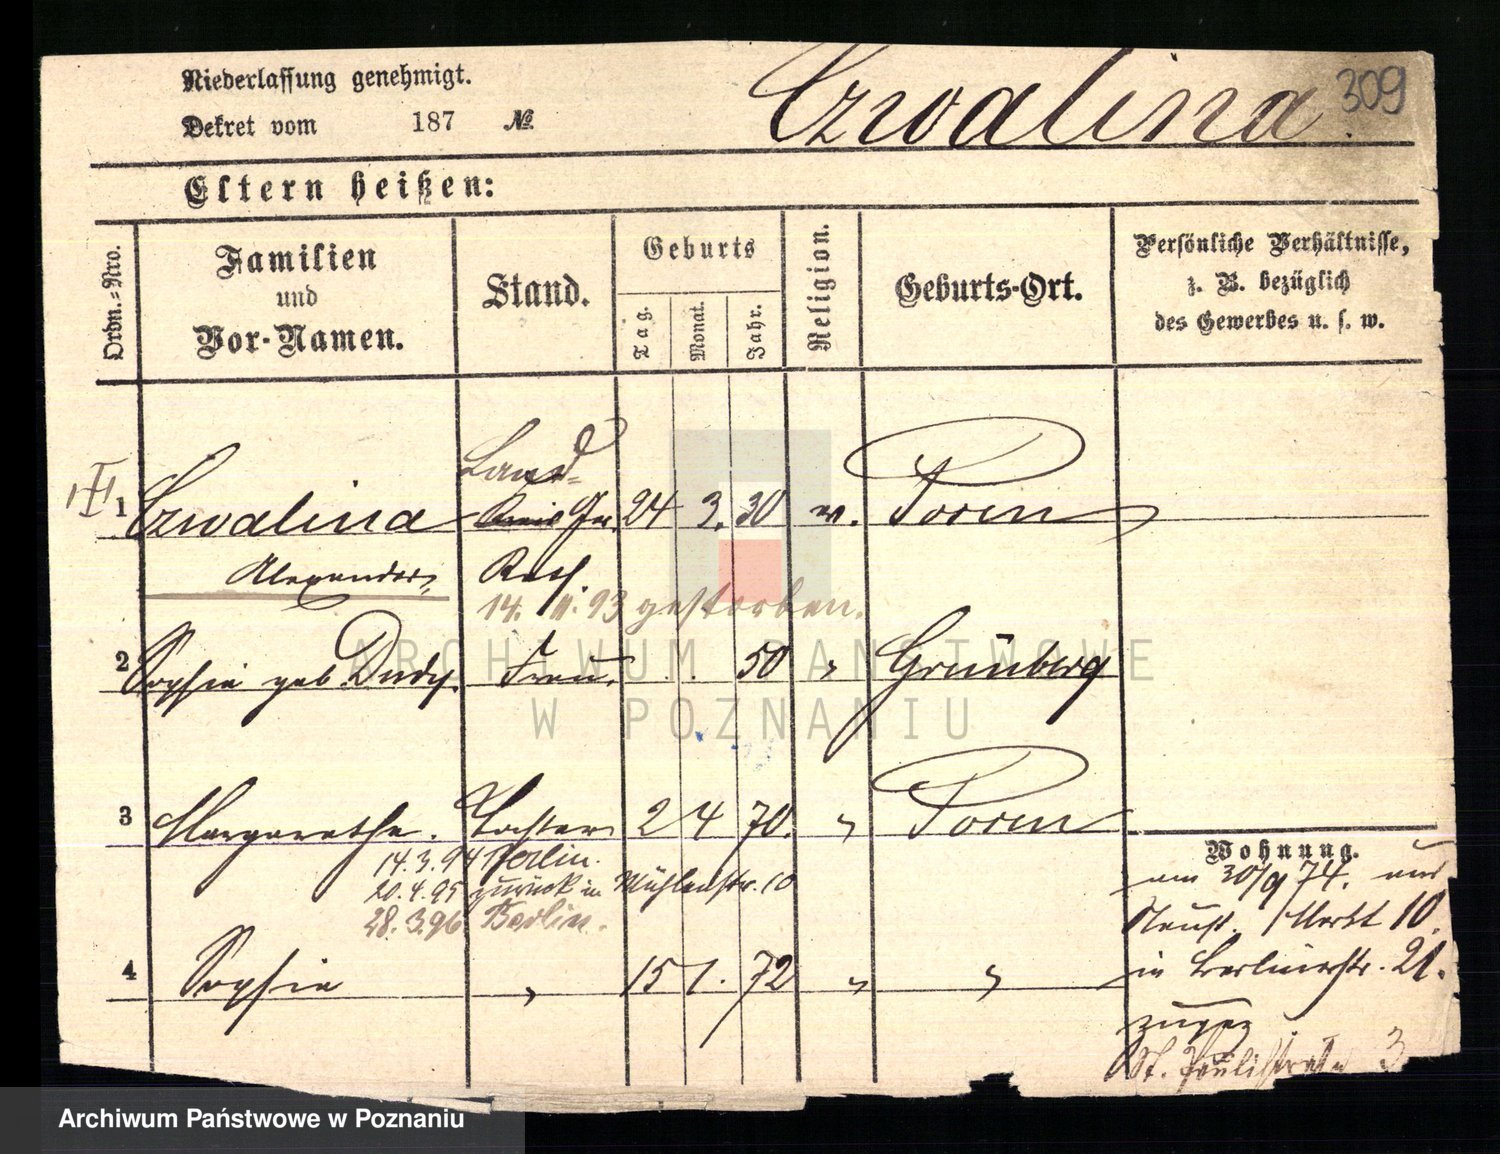 Niederlassung genehmigt.
Dekret vom 187 №
Czwalina.
309
Eltern heißen:
Ordn.=Nro.
Familien
und
Vor-Namen.
Stand.
Geburts
Tag.
Monat.
Jahr.
Religion.
Geburts-Ort.
Persönliche Verhältnisse,
z. B. bezüglich
des Gewerbes u. s. w.
Land=
1 Czwalina Kreis Ger. 24 3. 30 ev. Posen
Alexander Rath.
14. 11. 93 gestorben.
2 Sophie geb. Frau. 50 " Grünberg
3 Margarethe. Tochter 2 4 70. " Posen
14.3.94 Berlin.
20.4.95 zurück in Mühlenstr. 10
28.3.96 Berlin.
4 Sophie " 15 1. 72 " "
Wohnung.
am 30/9 74. aus
Neust. Markt 10.
in Berlinerstr. 21.
zugez.
St. Paulistraße 3
ARCHIWUM PAŃSTWOWE
W POZNANIU
Archiwum Państwowe w Poznaniu